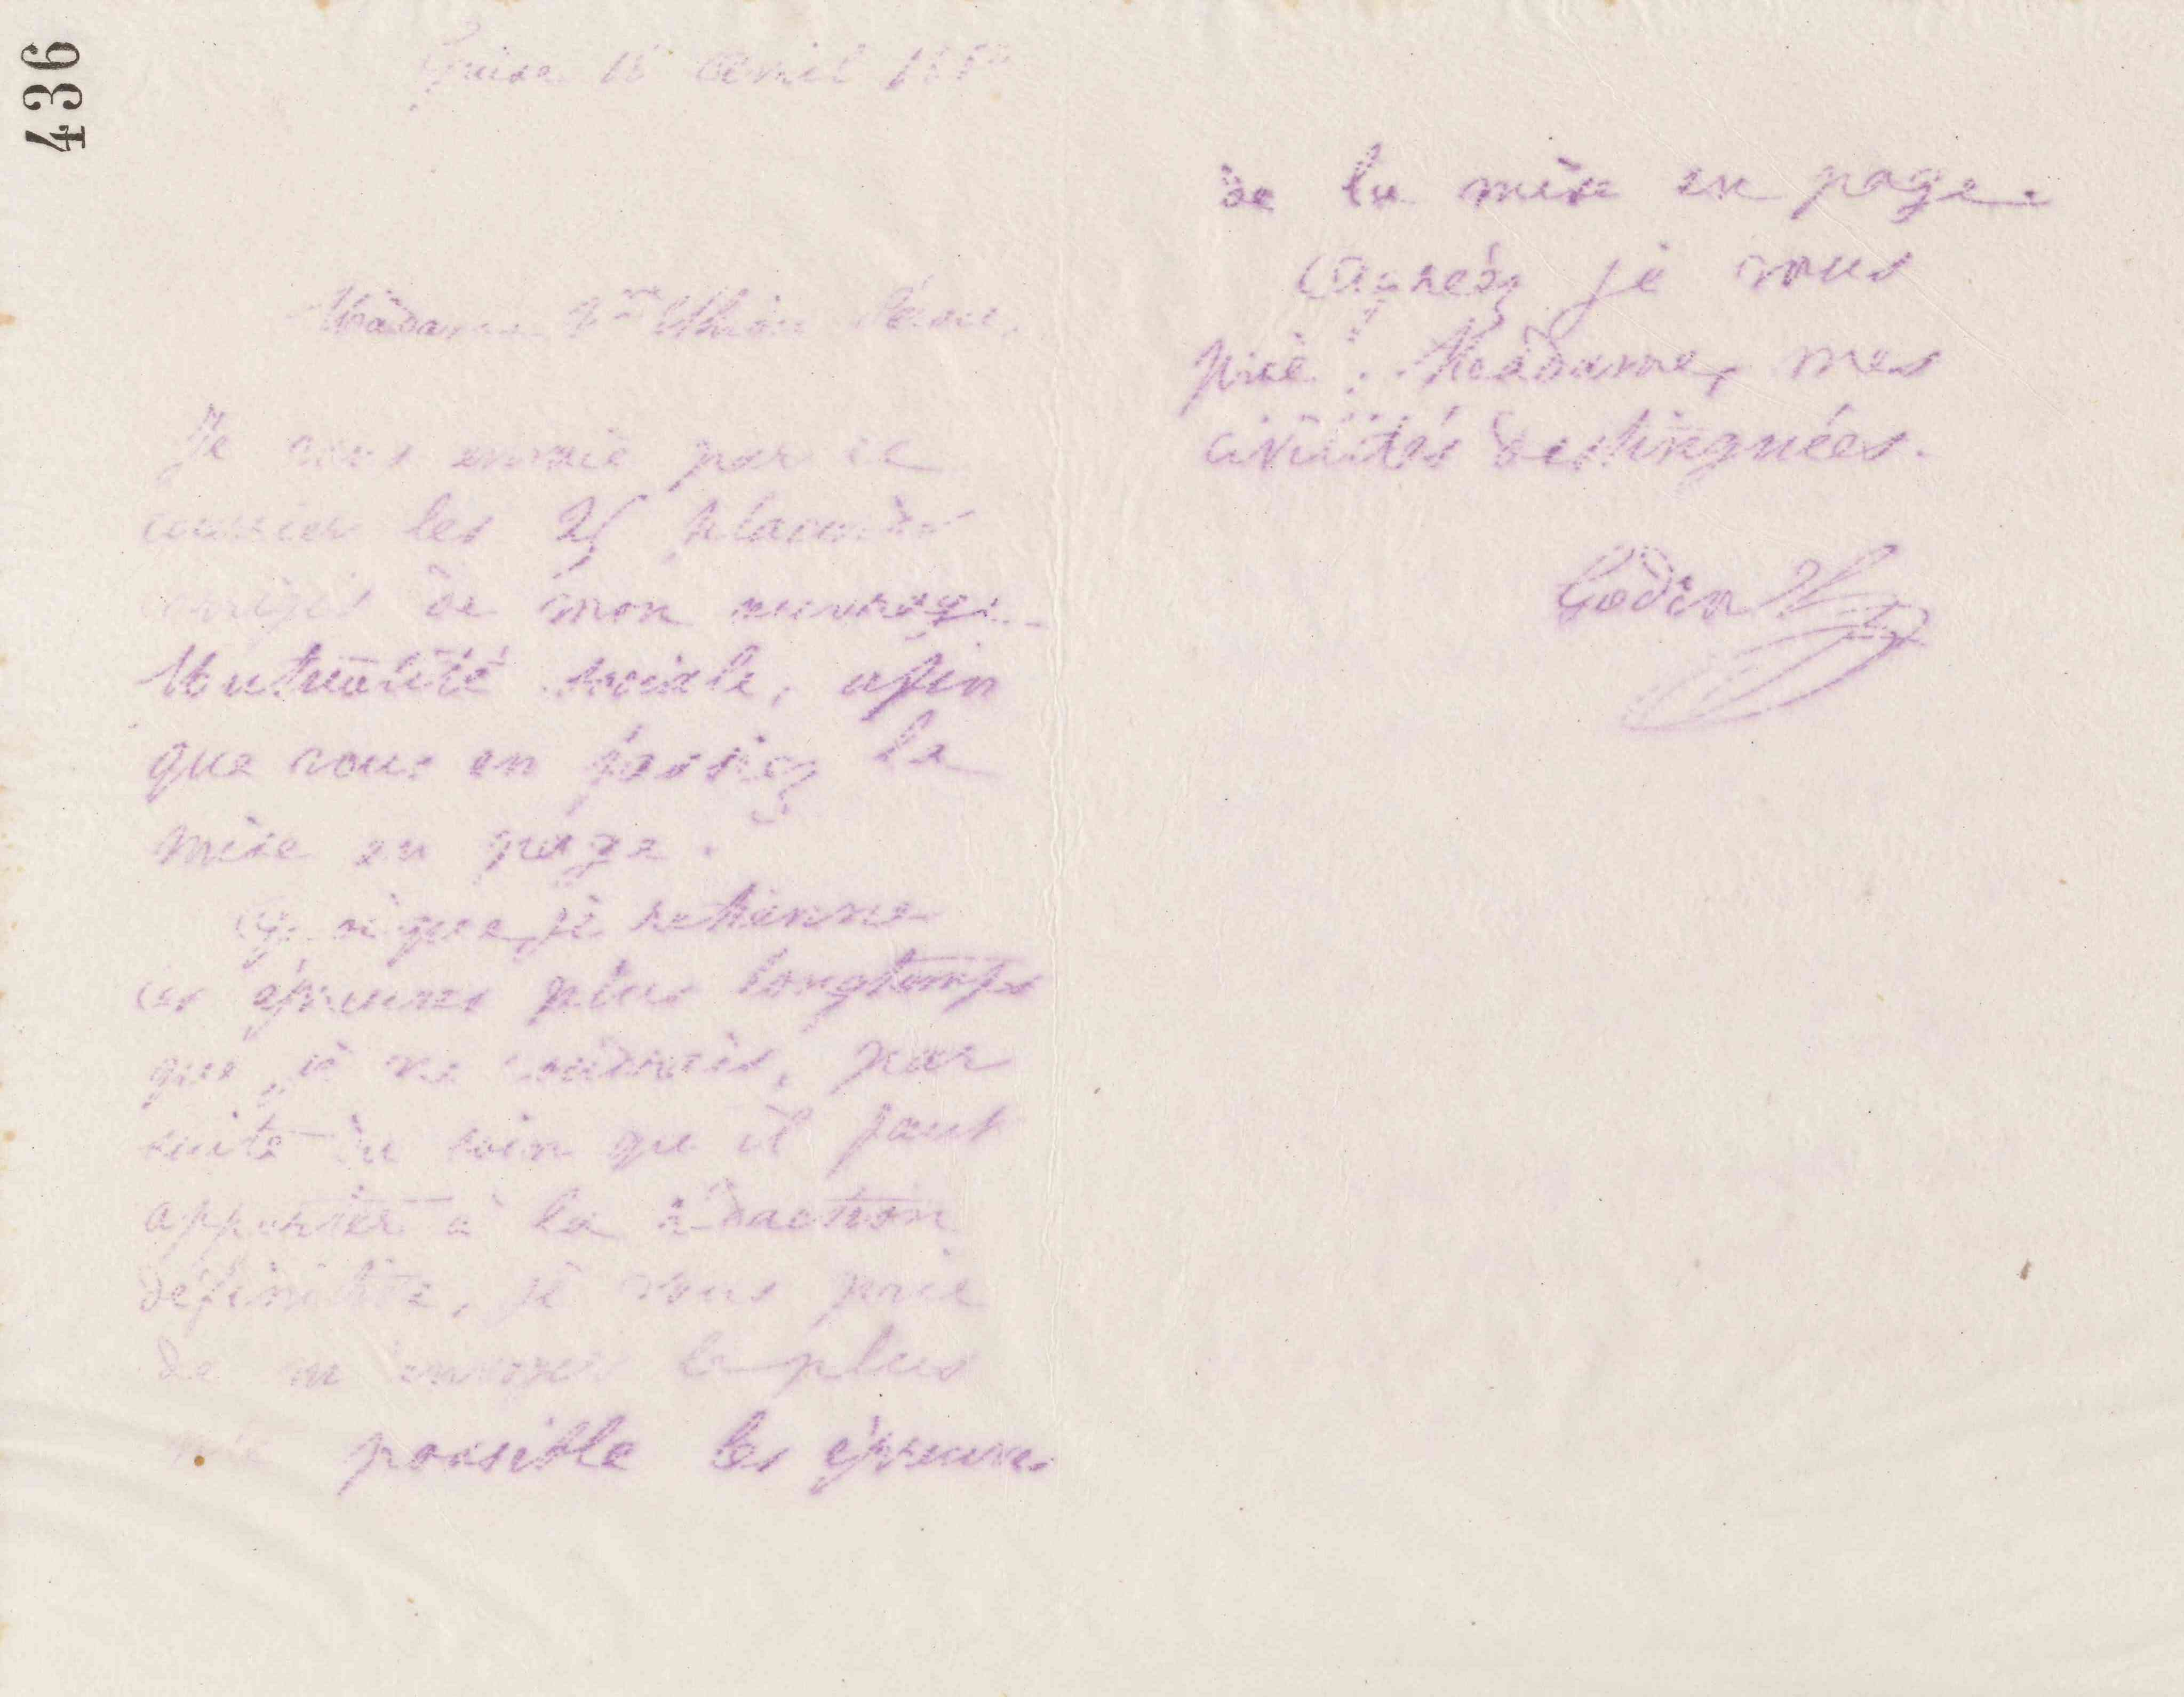 436
Guise 18 Avril 1880
Madame Vve
Je vous envoie par ce
courrier les 25 placards
corrigés de mon ouvrage
Mutualité sociale, afin
que vous en fassiez la
mise en page.
Quoique je retienne
ces épreuves plus longtemps
que je ne voudrais, par
suite du soin qu'il faut
apporter à la rédaction
définitive, je vous prie
de m'envoyer le plus
vite possible les épreuves
de la mise en page.
Agréez je vous
prie, Madame, mes
civilités distinguées.
Godin